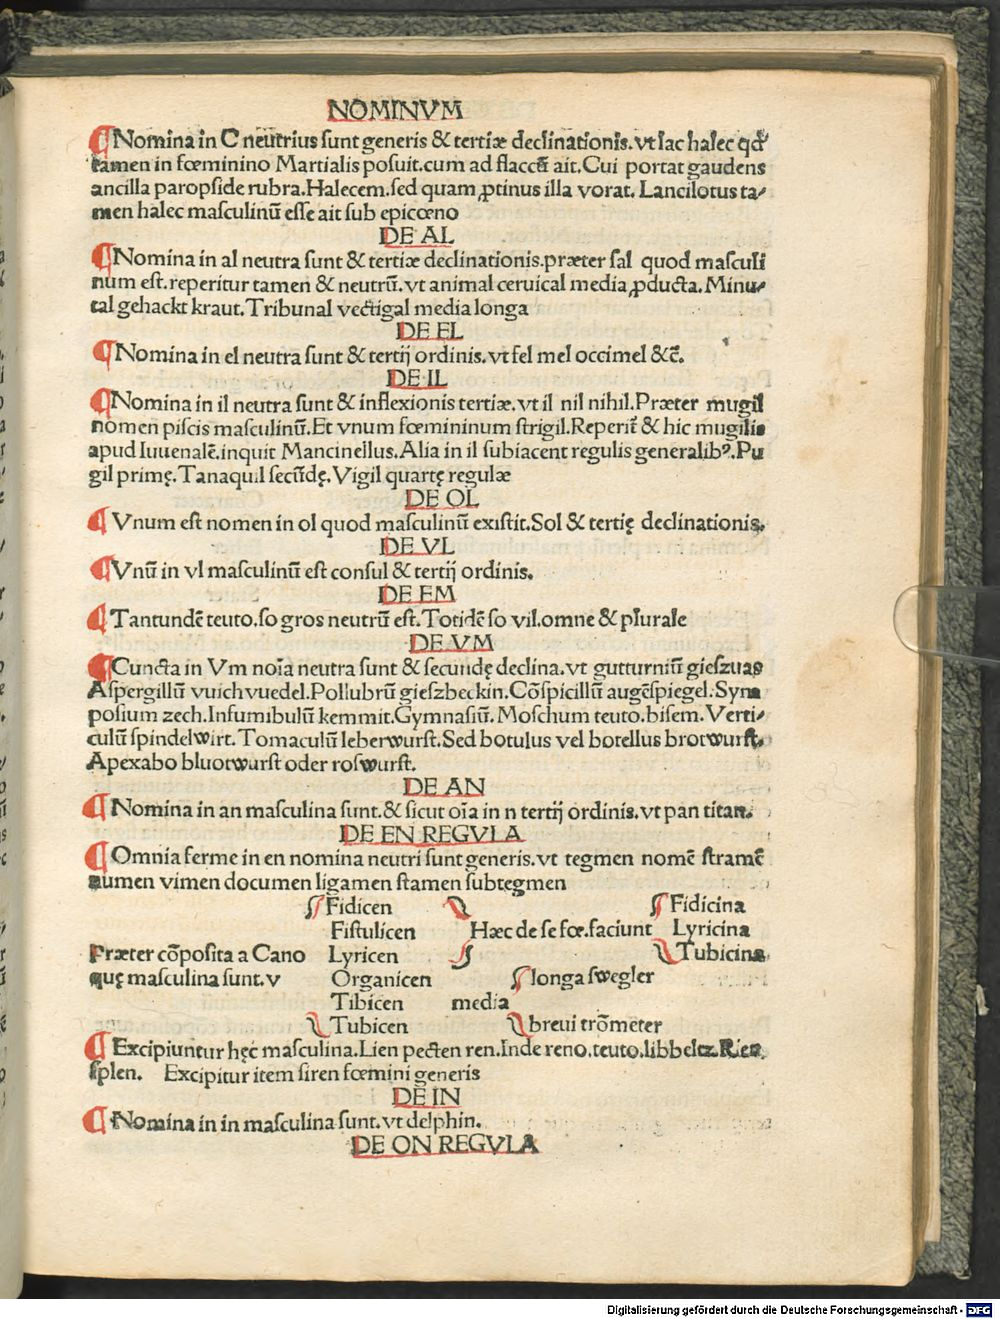 NOMINVM
¶Nomina in C neutrius sunt generis & tertiæ declinationis.vt lac halec qđ
tamen in fœminino Martialis posuit.cum ad flaccū ait.Cui portat gaudens
ancilla paropside rubra.Halecem.sed quam ꝓtinus illa vorat. Lancilotus ta-
men halec masculinū esse ait sub epicœno
DE AL
¶Nomina in al neutra sunt & tertiæ declinationis.præter sal quod masculi
num est.reperitur tamen & neutrū.vt animal ceruical media ꝓducta.Minu-
tal gehackt kraut.Tribunal vectigal media longa
DE EL
¶Nomina in el neutra sunt & tertij ordinis.vt fel mel occimel &c̄.
DE IL
¶Nomina in il neutra sunt & inflexionis tertiæ.vt il nil nihil.Præter mugil
nomen piscis masculinū.Et vnum fœmininum strigil.Reperit̄ & hic mugilis
apud Iuuenalē.inquit Mancinellus.Alia in il subiacent regulis generalibꝰ.Pu
gil primę.Tanaquil secūdę.Vigil quartę regulæ
DE OL
¶Vnum est nomen in ol quod masculinū existit.Sol & tertię declinationis.
DE VL
¶Vnū in vl masculinū est consul & tertij ordinis.
DE EM
¶Tantundē teuto.so gros neutrū est.Totidē so vil.omne & plurale
DE VM
¶Cuncta in Vm noīa neutra sunt & secundę declina.vt gutturniū gieszuas
Aspergillū vuich vuedel.Pollubrū gieszbeckin.Cōspicillū augēspiegel.Syna
posium zech.Infumibulū kemmit.Gymnasiū. Moschum teuto.bisem.Verti-
culū spindelwirt.Tomaculū leberwurst.Sed botulus vel botellus brotwurst.
Apexabo bluotwurst oder roswurst.
DE AN
¶Nomina in an masculina sunt.& sicut oīa in n tertij ordinis.vt pan titan.
DE EN REGVLA
¶Omnia ferme in en nomina neutri sunt generis.vt tegmen nomē stramē
numen vimen documen ligamen stamen subtegmen
Fidicen Fidicina
Fistulicen Hæc de se fœ.faciunt Lyricina
Præter cōposita a Cano Lyricen Tubicina
quę masculina sunt.v Organicen longa swegler
Tibicen media
Tubicen breui trōmeter
¶Excipiuntur hęc masculina.Lien pecten ren.Inde reno.teuto.libbeltz.Rien
splen. Excipitur item siren fœmini generis
DE IN
¶Nomina in in masculina sunt.vt delphin.
DE ON REGVLA
Digitalisierung gefördert durch die Deutsche Forschungsgemeinschaft - DFG